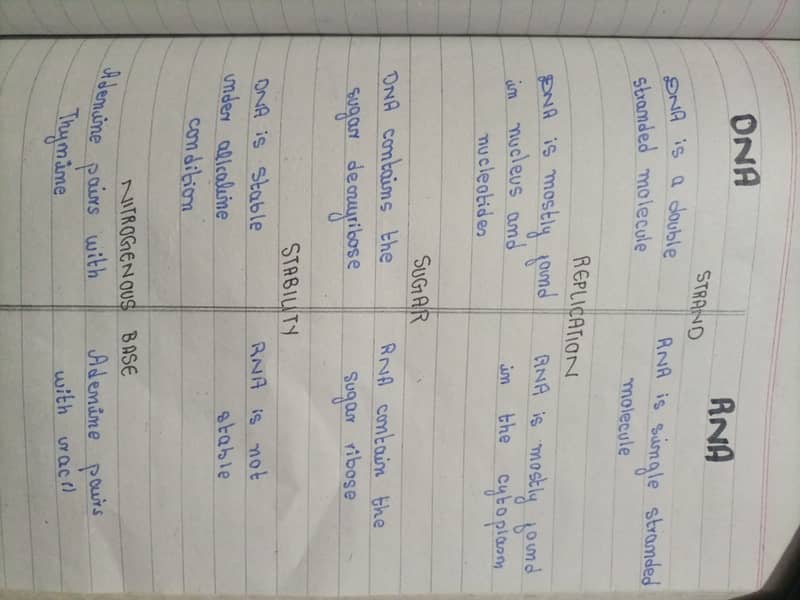 DNA RNA
STRAND
DNA is a double RNA is single stranded
stranded molecule molecule
REPLICATION
DNA is mostly found RNA is mostly found
in nucleus and in the cytoplasm
nucleotides
SUGAR
DNA contains the RNA contain the
sugar deoxyribose sugar ribose
STABILITY
DNA is stable RNA is not
under alkaline stable
condition
NITROGENOUS BASE
Adenine pairs with Adenine pairs
Thymine with uracil